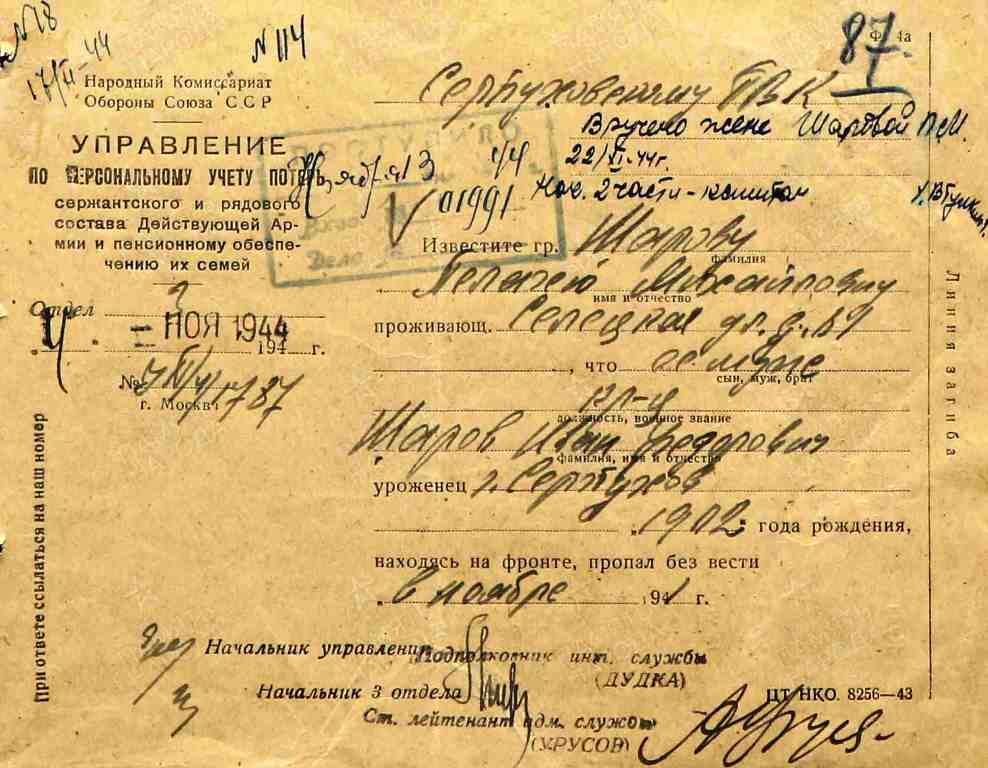 № 18
17/II-44
№ 114
87
1
Ф. 4а
Народный Комиссариат
Обороны Союза ССР
УПРАВЛЕНИЕ
ПО ПЕРСОНАЛЬНОМУ УЧЕТУ ПОТЕРЬ
сержантского и рядового
состава Действующей Ар-
мии и пенсионному обеспе-
чению их семей
Отдел
4
- НОЯ 1944
194 г.
№
г. Москва
Серпуховскому ГВК
Вручено жене Шаровой П.М.
22/XI-44г.
Нач. 2 части - капитан
01991
Известите гр. Шарову
фамилия
Пелагею Михайловну
имя и отчество
проживающ. Селецкая ул. д. 89
, что ее муж
сын, муж, брат
кр-ц
должность, военное звание
Шаров Иван Федорович
фамилия, имя и отчество
уроженец г. Серпухов
1902 года рождения,
находясь на фронте, пропал без вести
в ноябре 1941 г.
Начальник управления
Подполковник инт. службы
(ДУДКА)
Начальник 3 отдела
Ст. лейтенант адм. службы
(УРУСОВ)
ЦТ НКО. 8256—43
При ответе ссылаться на наш номер
Линия загиба